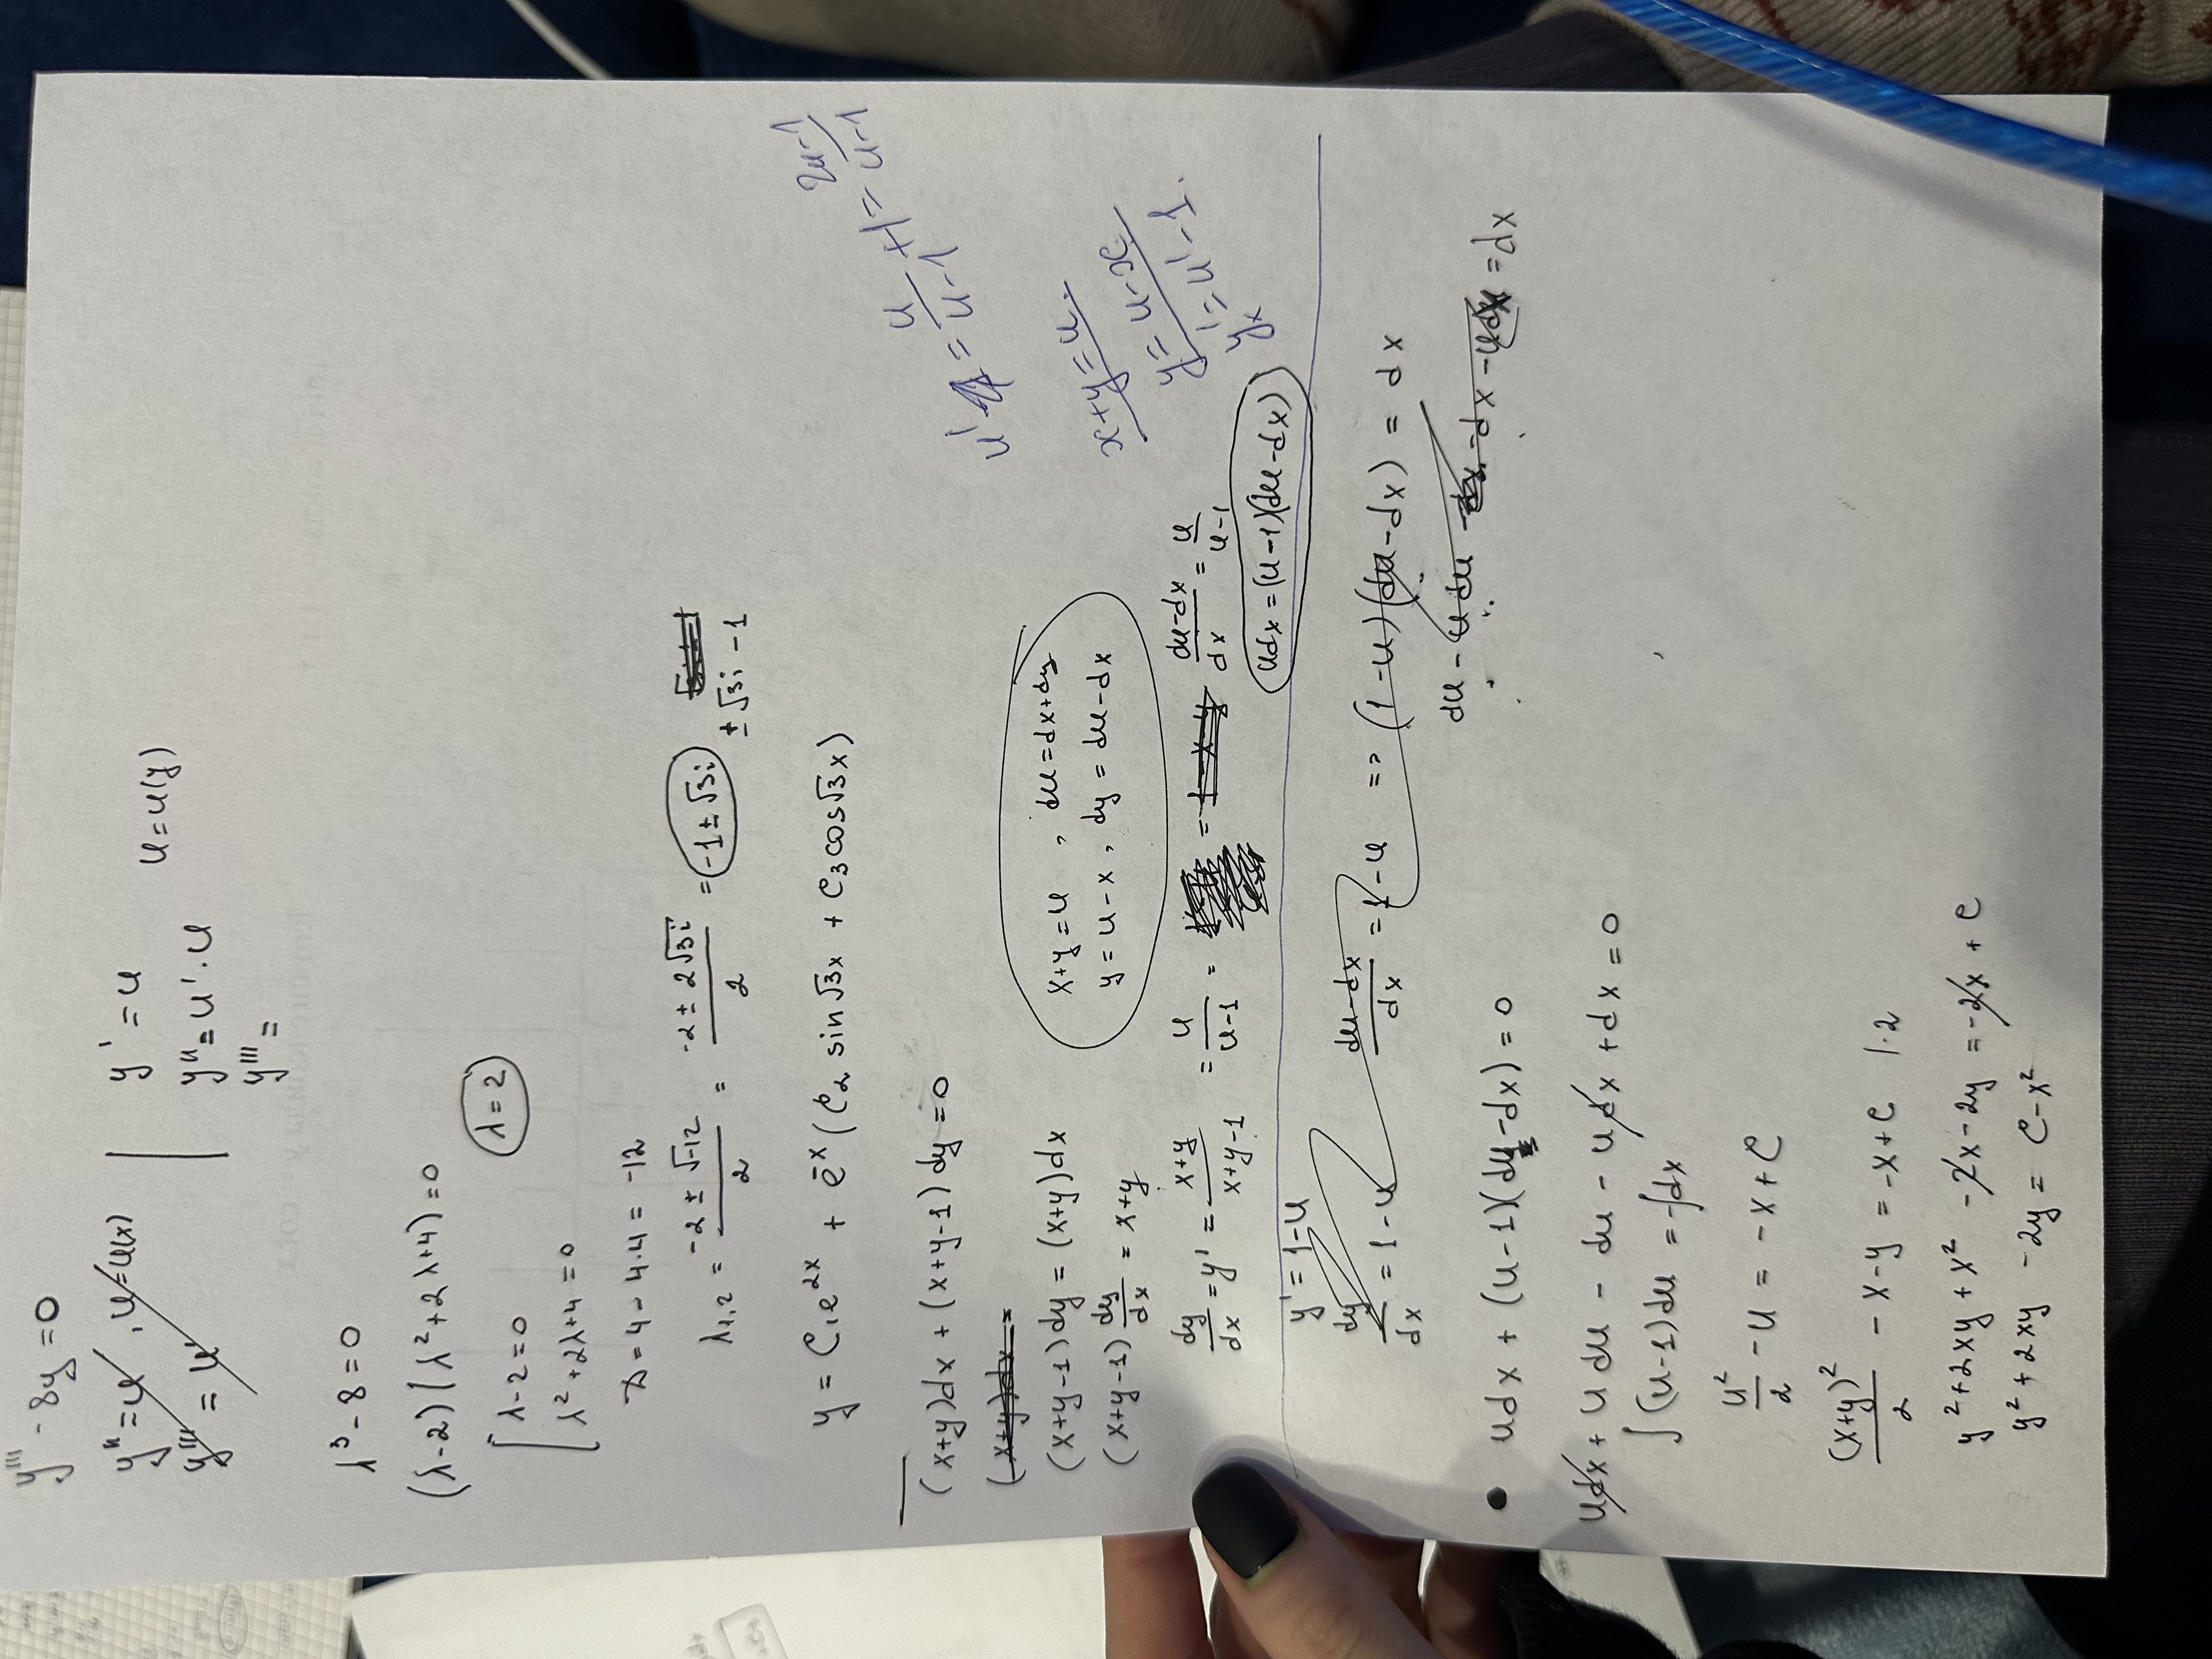 y''' - 8y = 0
y'' = u , u = u(x)
y''' = u'
y' = u
u = u(y)
y'' = u' · u
y''' =
λ³ - 8 = 0
(λ-2)(λ²+2λ+4) = 0
λ-2 = 0
λ = 2
λ²+2λ+4 = 0
D = 4 - 4·4 = -12
λ1,2 = (-2 ± √-12)/2 = (-2 ± 2√3i)/2 = -1 ± √3i ± √3i - 1
y = C₁e^2x + e^-x (C₂ sin√3x + C₃cos√3x)
(x+y)dx + (x+y-1)dy = 0
(x+y)dx =
(x+y-1)dy = (x+y)dx
(x+y-1) dy/dx = x+y
x+y = u , du = dx+dy
y = u-x , dy = du-dx
dy/dx = y' = (x+y)/(x+y-1) = u/(u-1) = = 1-x-y (du-dx)/dx = u/(u-1)
udx = (u-1)(du-dx)
u' = u/(u-1) + 1 = (2u-1)/(u-1)
x+y = u.
y = u-x
y'x = u'-1.
y' = 1-u
dy/dx = 1-u (du-dx)/dx = 1-u => (1-u)(du-dx) = dx
du - udu - dx - dx - udx = dx
• udx + (u-1)(du-dx) = 0
udx + udu - du - udx + dx = 0
∫(u-1)du = -∫dx
u²/2 - u = -x + C
(x+y)²/2 - x - y = -x + C |·2
y² + 2xy + x² - 2x - 2y = -2x + C
y² + 2xy - 2y = C - x²